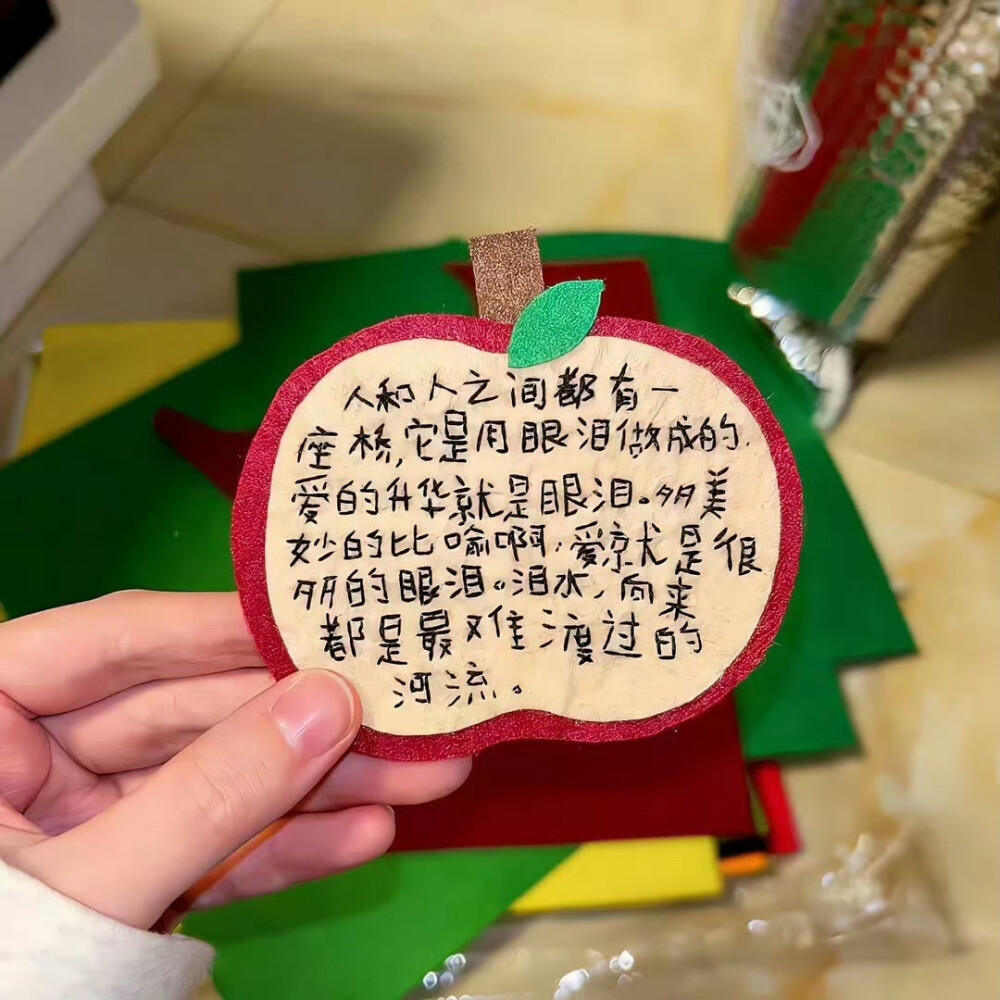 人和人之间都有一
座桥,它是用眼泪做成的.
爱的升华就是眼泪。多美
妙的比喻啊,爱就是很
多的眼泪。泪水,向来
都是最难渡过的
河流。